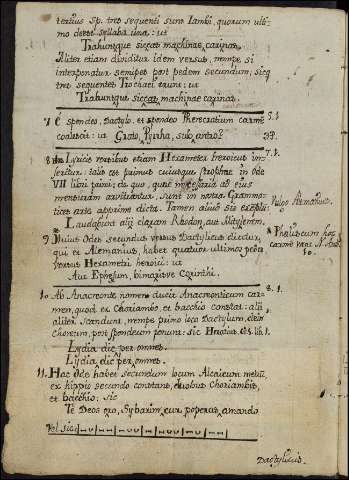 tertius Sp. tres sequenti sunt Iambi, quorum ulti-
mo deest syllaba una: ut
Trahuntque siccas machinæ carinas.
Aliter etiam dividitur idem versus, nempe si
interponatur semipes post pedem secundum, sicq
tres sequentes Trochaei erunt: ut
Trahuntque siccas machinæ carinas.
7 E spondeo, Dactylo, et spondeo Pherecratium carmē
coalescit: ut Grato, Pyrrha, sub antro?
8 Lyricis versibus etiam Hexameter heroicus in-
seritur: talis est primus cuiusque strophæ in ode
VII libri primi; de quo, quæ necessaria ad eius
mensuram sunt in nostra Grammati-
ces arte apprime dicta. Tamen alivo sic
Laudabunt alij claram Rhodon, aut Mitylenem,
9 Huius Odes secundus versus Dactylicus dicitur,
qui et Alcmanius, habet quatuor ultimos pedes
versus Hexametri heroici: ut
Aut Ephesum, bimarisve Corinthi.
10 Ab Anacreonte nomen ducit Anacreonticum car-
men, quod ex Choriambo, et bacchio constat: alii
aliter scandunt, nempe primo loco Dactylum, dein
Choreum, post spondeum ponunt: sic Horatius
Lydia dic per omnes.
Lydia, dic per omnes.
11. Hac Ode habet secundum locum Alcaicum
ex hippio secundo constans, duobus Choriambis,
et bacchio: sic
Te Deos oro, Sybarim, cur properas amando
Vel sic
Dactylicus
5.1
7.1.
Vulgo Alcmanium.
Phaliscum hoc
8.1.
lib. 1.